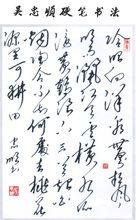 吴忠顺硬笔书法
冷眼向洋看世界热风
吹雨洒江天云横九派
浮黄鹤浪下三吴起白
烟陶令不知何处去桃花
源里可耕田